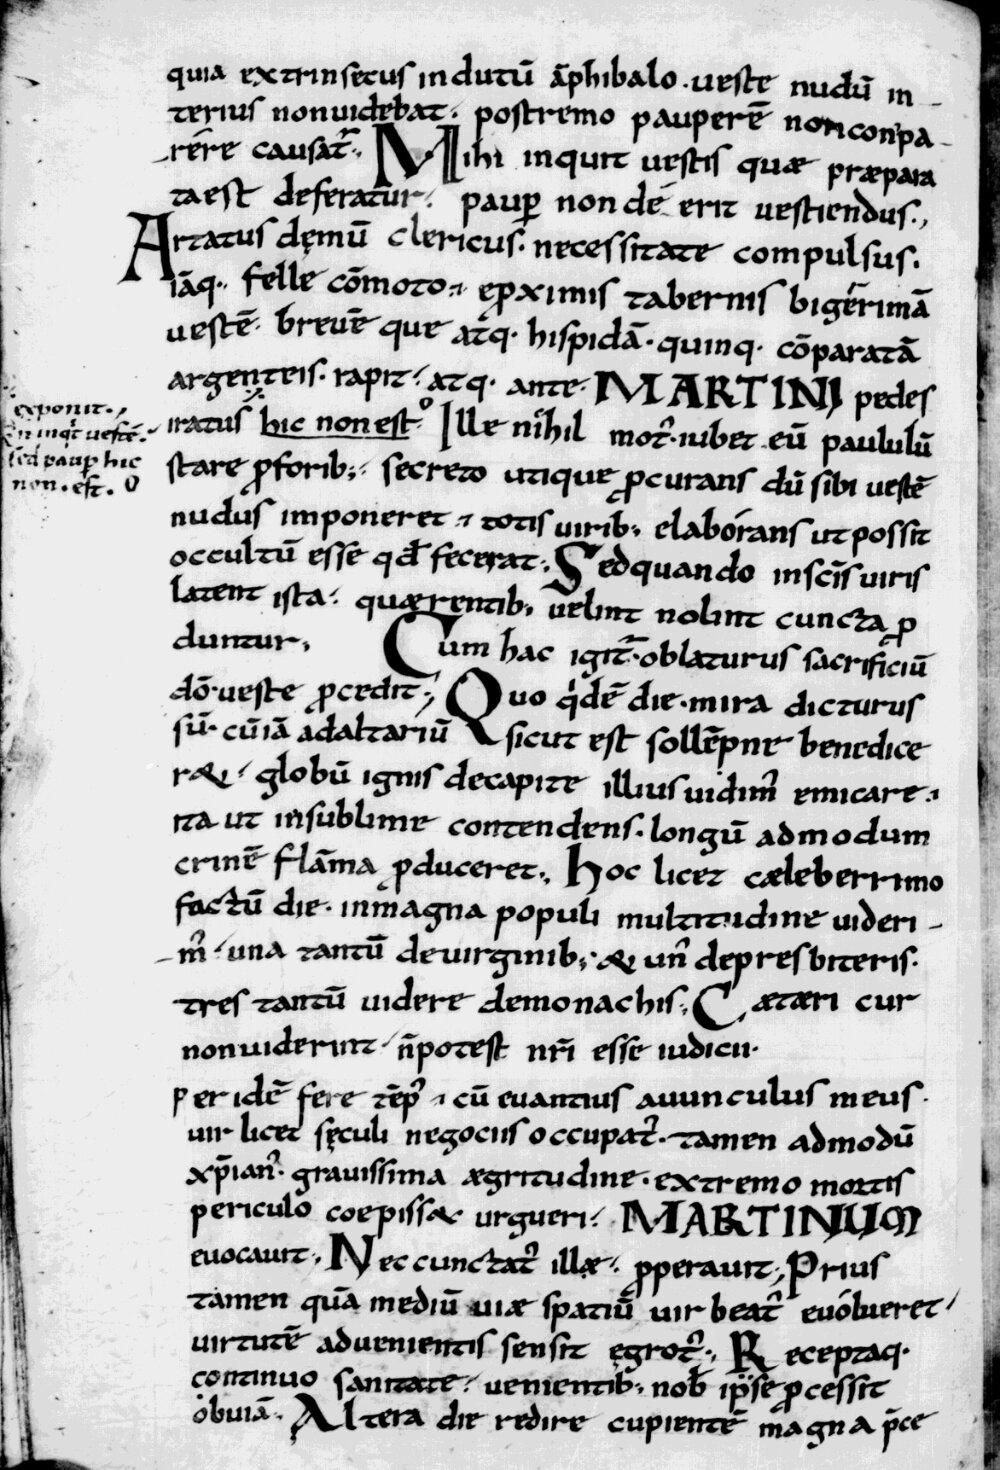 quia extrinsecus indutū āphibalo. veste nudū in-
terius nonvidebat. postremo pauperē non conpa-
rére causať. Mihi inquit vestis quæ præpara
ta est deferatur. paup̱ non deerit vestiendus.,
Artatus dęmū clericus. necessitate compulsus.
iāq. felle cōmoto. eṗximis tabernis bigerrimā
vestē. brevē que atq. hispidā. quinq. cōparatā
argenteis. rapit. atq. ante. MARTINI pedes
exponit.,
En inqt vestē.
sed paup̱ hic
non. est.
iratus hic non est. Ille nihil mot᾽. iubet eū paululū
stare p̱forib; secreto utique p̱curans dū sibi vestē
nudus imponeret. totis virib; elaborans ut possit
occultū esse qd̄ fecerat. Sed quando in sc̄is viris
latent ista. quærentib; velint nolint cuncta p̱
duntur, Cum hac igit᾽. oblaturus sacrificiū
dō. veste p̱cedit; Quo qdē die. mira dicturus
sū. cū iā ad altariū sicut est sollēpne benedice
r&. globū ignis decapite illius vidim᾽ emicare.
ita ut insublime contendens. longū admodum
crinē flāma p̱duceret. hoc licet cæleberrimo
factū die. inmagna populi multitudine videri-
m᾽. una tantū devirginib; & un᾽ depresbiteris.
tres tantū videre demonachis; Cætæri cur
nonviderint. n̄potest nr̄i esse iudicii.
Per idē fere tēp᾽. cū evantius avunculus meus.
vir licet sęculi negociis occupat᾽. tamen admodū
xp̄ian᾽. gravissima ægritudine. extremo mortis
periculo coepiss& urgueri. MARTINUM
evocavit. Nec cunctat᾽ illæ. p̱peravit; Prius
tamen quā mediū viæ spatiū vir beat᾽ evolveret
virtutē advenientis sensit ęgrot᾽. Receptaq.
continuo sanitate. venientib; nob᾽ ipse p̱cessit
obviā. Altera die redire cupientē magna p̄ce